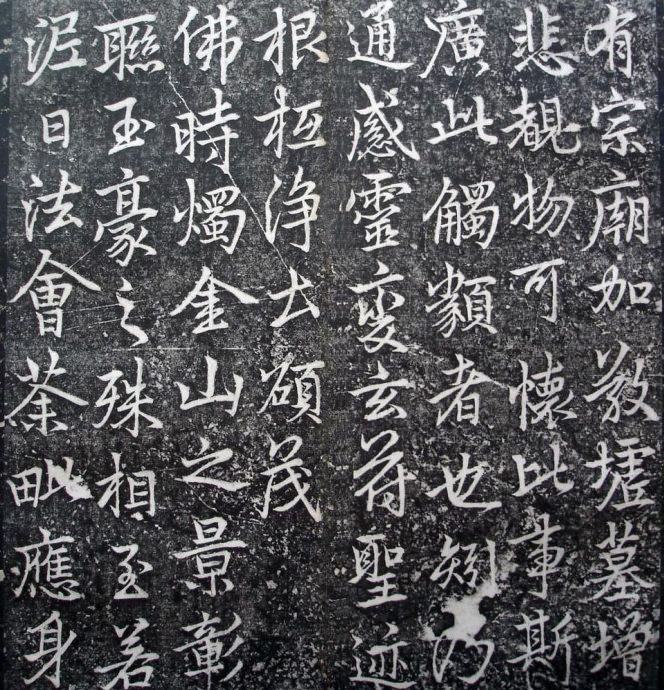 有宗廟加敬墟墓增
悲覩物可懷比事斯
廣此觸類者也矧乃
通感靈變玄符聖迹
根柢淨土碩茂
佛時燭金山之景彰
聯玉豪之殊相至若
泥日法會荼毗應身